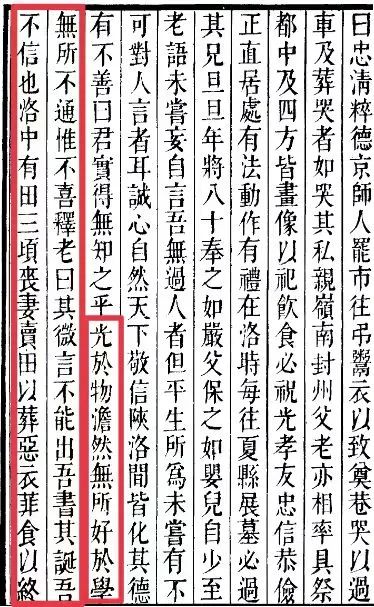 曰忠清粹德京師人罷市往弔鬻衣以致奠巷哭以過
車及葬哭者如哭其私親嶺南封州父老亦相率具祭
都中及四方皆畫像以祀飲食必祝光孝友忠信恭儉
正直居處有法動作有禮在洛時每往夏縣展墓必過
其兄旦旦年將八十奉之如嚴父保之如嬰兒自少至
老語未嘗妄自言吾無過人者但平生所為未嘗有不
可對人言者耳誠心自然天下敬信陝洛間皆化其德
有不善曰君實得無知之乎光於物澹然無所好於學
無所不通惟不喜釋老曰其微言不能出吾書其誕吾
不信也洛中有田三頃喪妻賣田以葬惡衣菲食以終